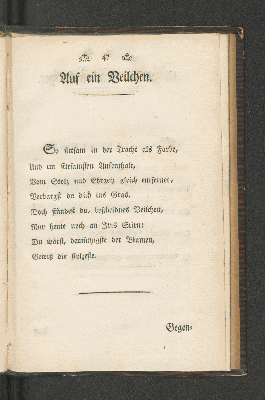 47
Auf ein Veilchen.
So sittsam in der Tracht als Farbe,
Und am sittsamsten Aufenthalt,
Vom Stolz und Ehrgeiz gleich entfernet,
Verbargst du dich ins Gras.
Doch ständest du, bescheidnes Veilchen,
Nur heute noch an
Du wärst, demüthigste der Blumen,
Gewiß die stolzeste.
Gegen-